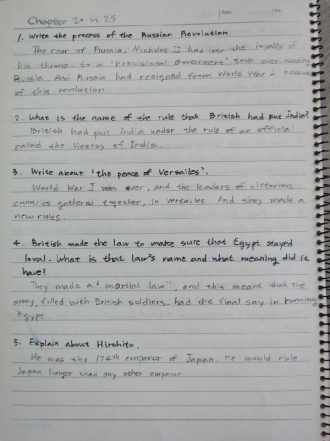 Chapter 20 ~ 25
1. Write the process of the Russian Revolution.
The czar of Russia, Nicholas II had lost the loyalty of
his throne. So a "Provisional Government" took over running
Russia. And Russia had resigned from World War 1 because
of this revolution.
2. What is the name of the rule that British had put India?
British had put India under the rule of an official
called the Viceroy of India.
3. Write about 'the peace of Versailles'.
World War I was over, and the leaders of victorious
countries gathered together, in Versailles. And they made a
new rules.
4. British made the law to make sure that Egypt stayed
loyal. What is that law's name and what meaning did it
have?
They made a "martial law", and this meant that the
army, filled with British soldiers, had the final say in running
Egypt.
5. Explain about Hirohito.
He was the 124th emperor of Japan. He would rule
Japan longer than any other emperor.